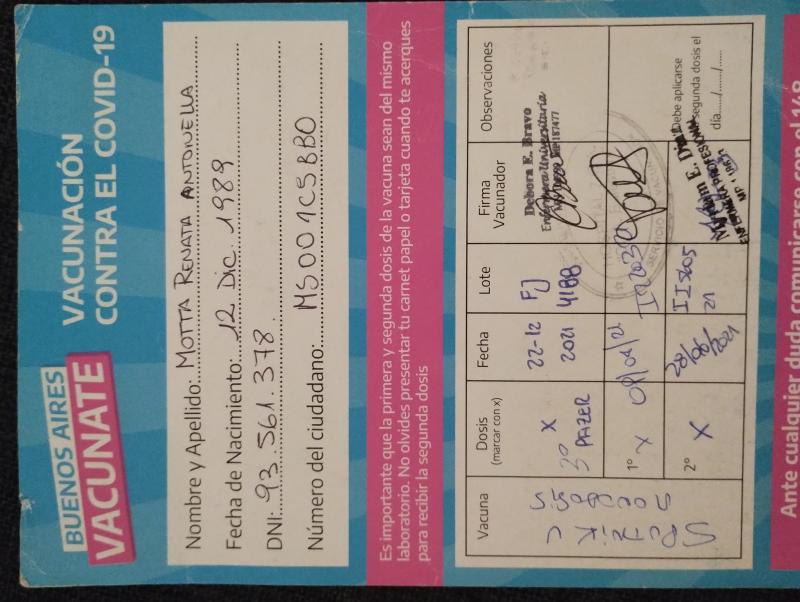 BUENOS AIRES
VACUNATE
VACUNACIÓN
CONTRA EL COVID-19
Nombre y Apellido: MOTTA RENATA ANTONELLA
Fecha de Nacimiento: 12 DIC. 1989
DNI: 93.561.378.
Número del ciudadano: MS001C5BBO
Es importante que la primera y segunda dosis de la vacuna sean del mismo
laboratorio. No olvides presentar tu carnet papel o tarjeta cuando te acerques
para recibir la segunda dosis
Vacuna
Dosis
(marcar con x)
Fecha
Lote
Firma
Vacunador
Observaciones
SPUTNIK V
X
3º
22-12
2021
FJ
4188
Debora E. Bravo
Enfermera Universitaria
1º
X
2º
X
2021
21
Debe aplicarse
segunda dosis el
día....../....../......
Ante cualquier duda comunicarse con el 148